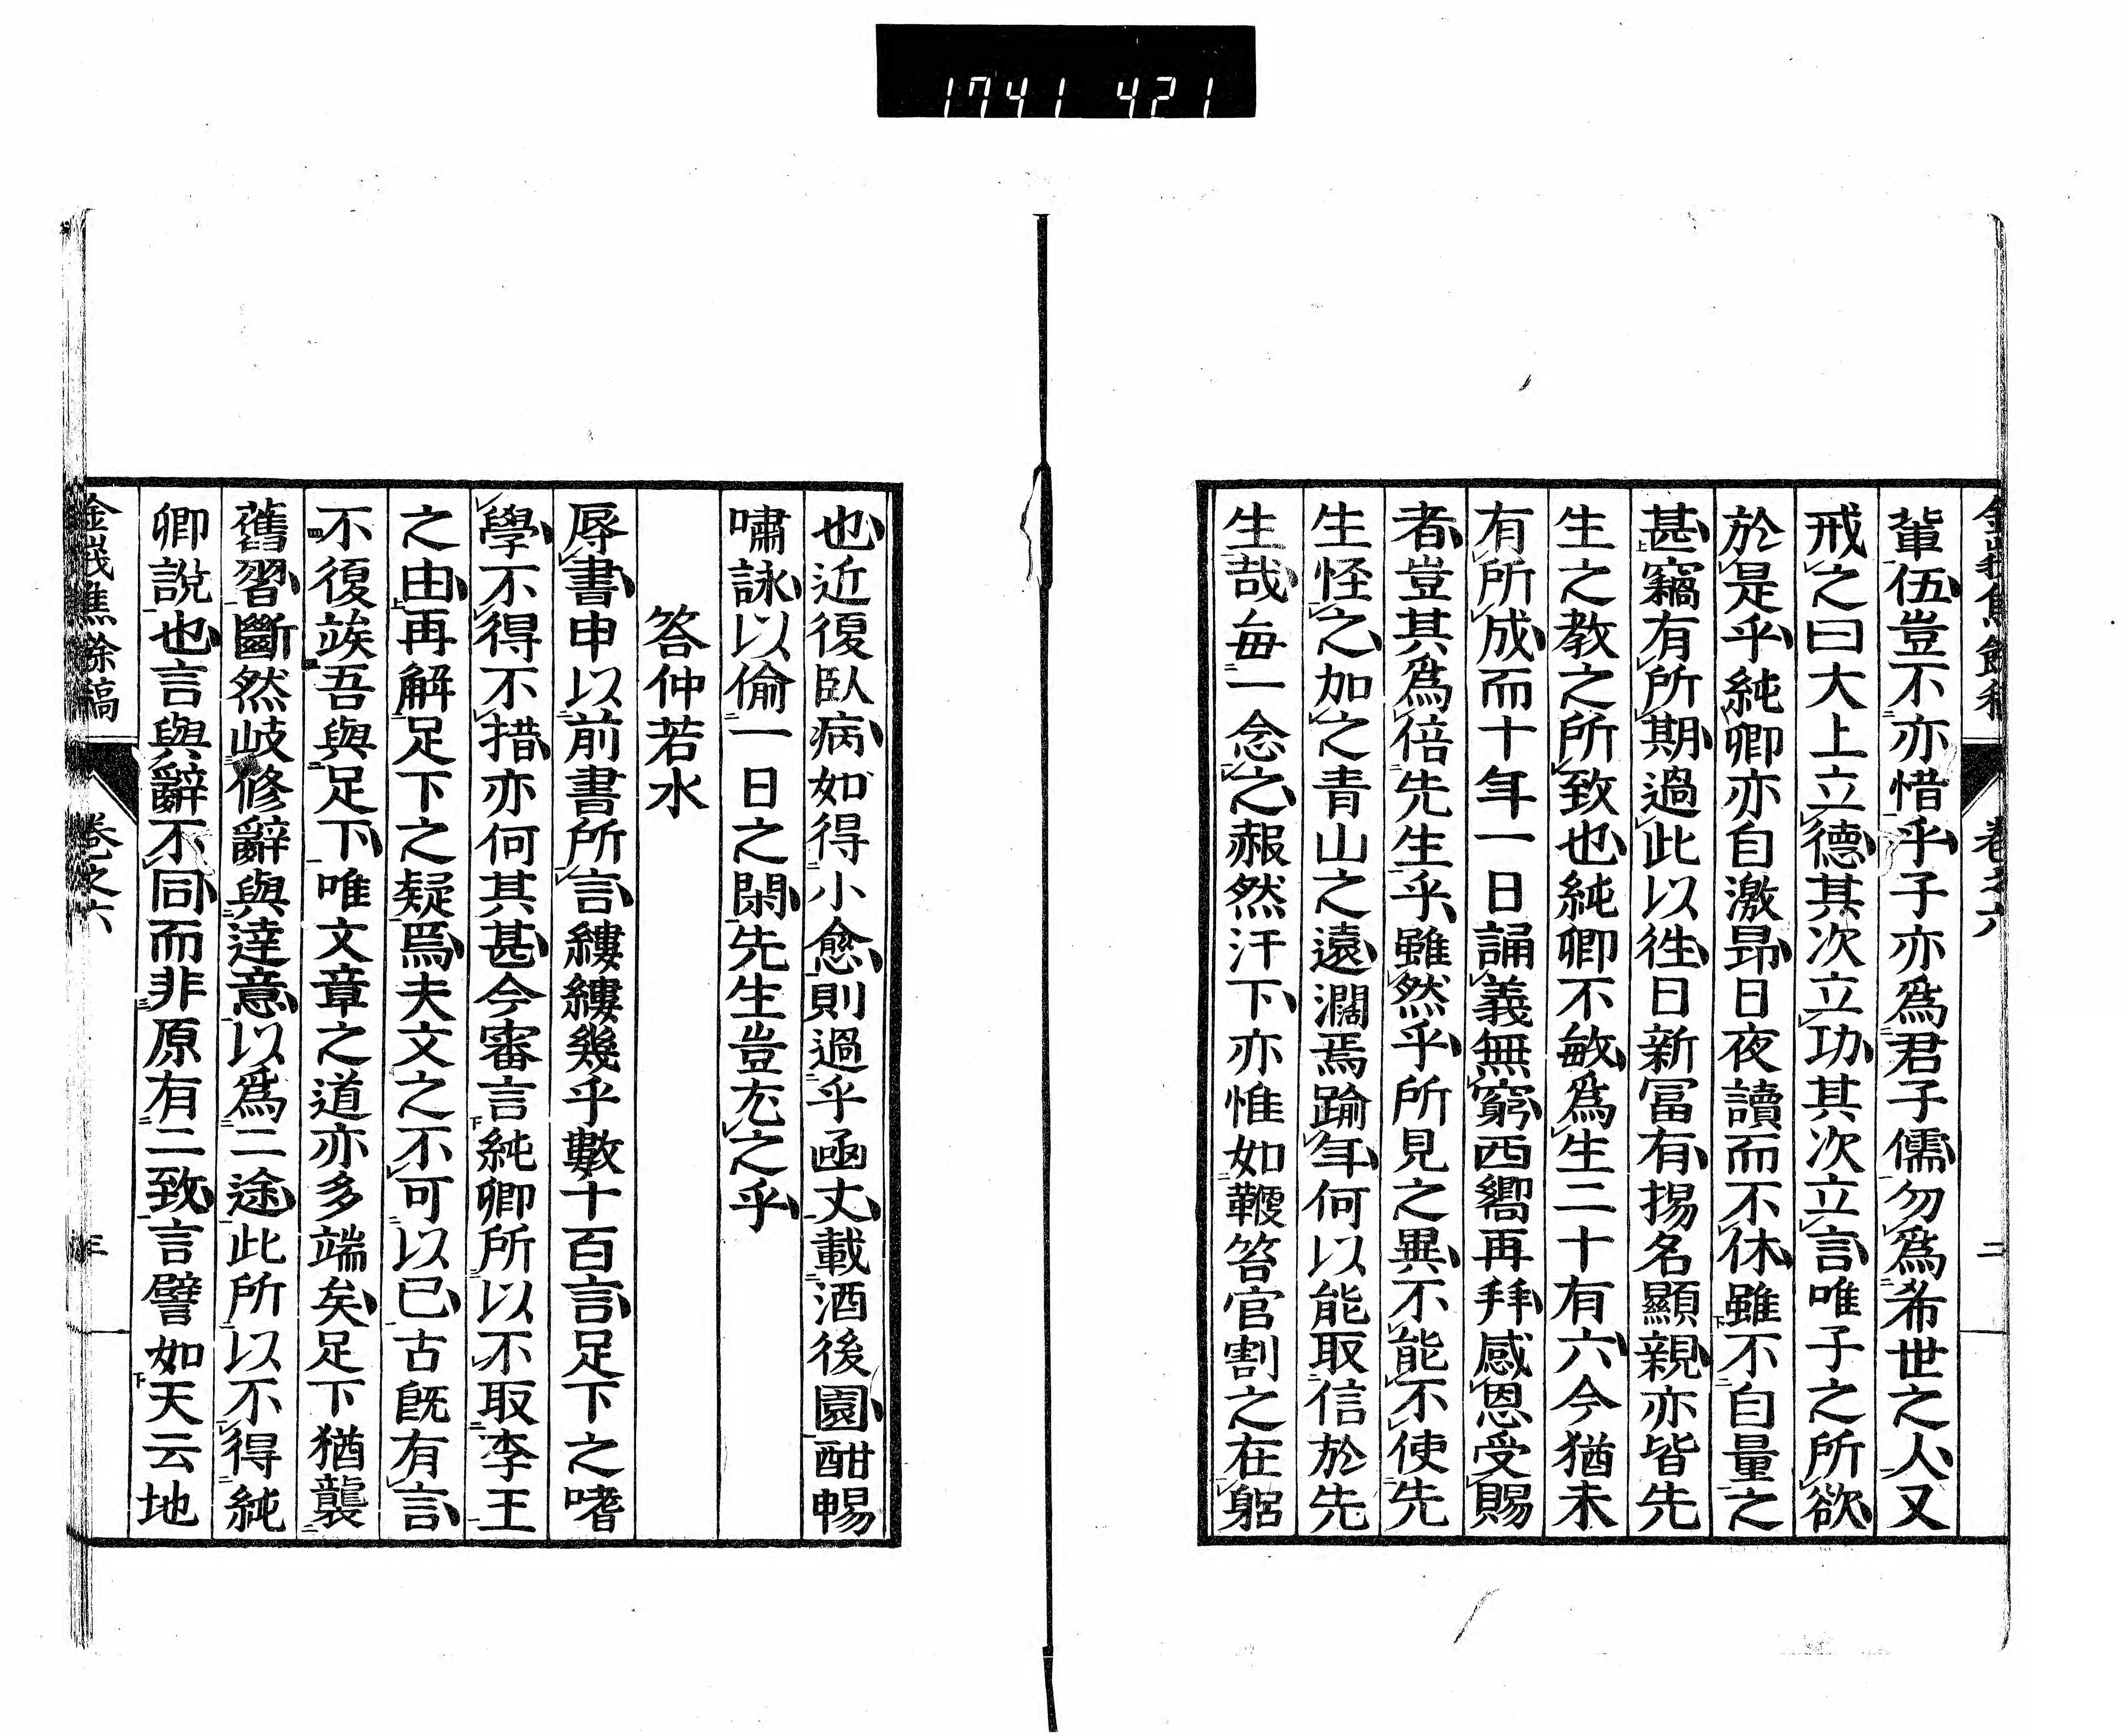 1741 421
金峩焦餘稿 卷之六 二
輩伍豈不亦惜乎子亦爲君子儒勿爲希世之人又
戒之曰大上立德其次立功其次立言唯子之所欲
於是乎純卿亦自激昂日夜讀而不休雖不自量之
甚竊有所期過此以徃日新冨有揚名顯親亦皆先
生之教之所致也純卿不敏爲生二十有六今猶未
有所成而十年一日誦義無窮西嚮再拜感恩受賜
者豈其爲倍先生乎雖然乎所見之異不能不使先
生怪之加之青山之遠濶焉踰年何以能取信於先
生哉每一念之赧然汗下亦惟如鞭笞官割之在躬
也近復臥病如得小愈則過乎函丈載酒後園酣暢
嘯詠以偷一日之閑先生豈尤之乎
答仲若水
辱書申以前書所言縷縷幾乎數十百言足下之嗜
學不得不措亦何其甚今審言純卿所以不取李王
之由再解足下之疑焉夫文之不可以已古既有言
不復竢吾與足下唯文章之道亦多端矣足下猶襲
舊習斷然岐修辭與達意以爲二途此所以不得純
卿說也言與辭不同而非原有二致言譬如天云地
金峩焦餘稿 卷之六 三